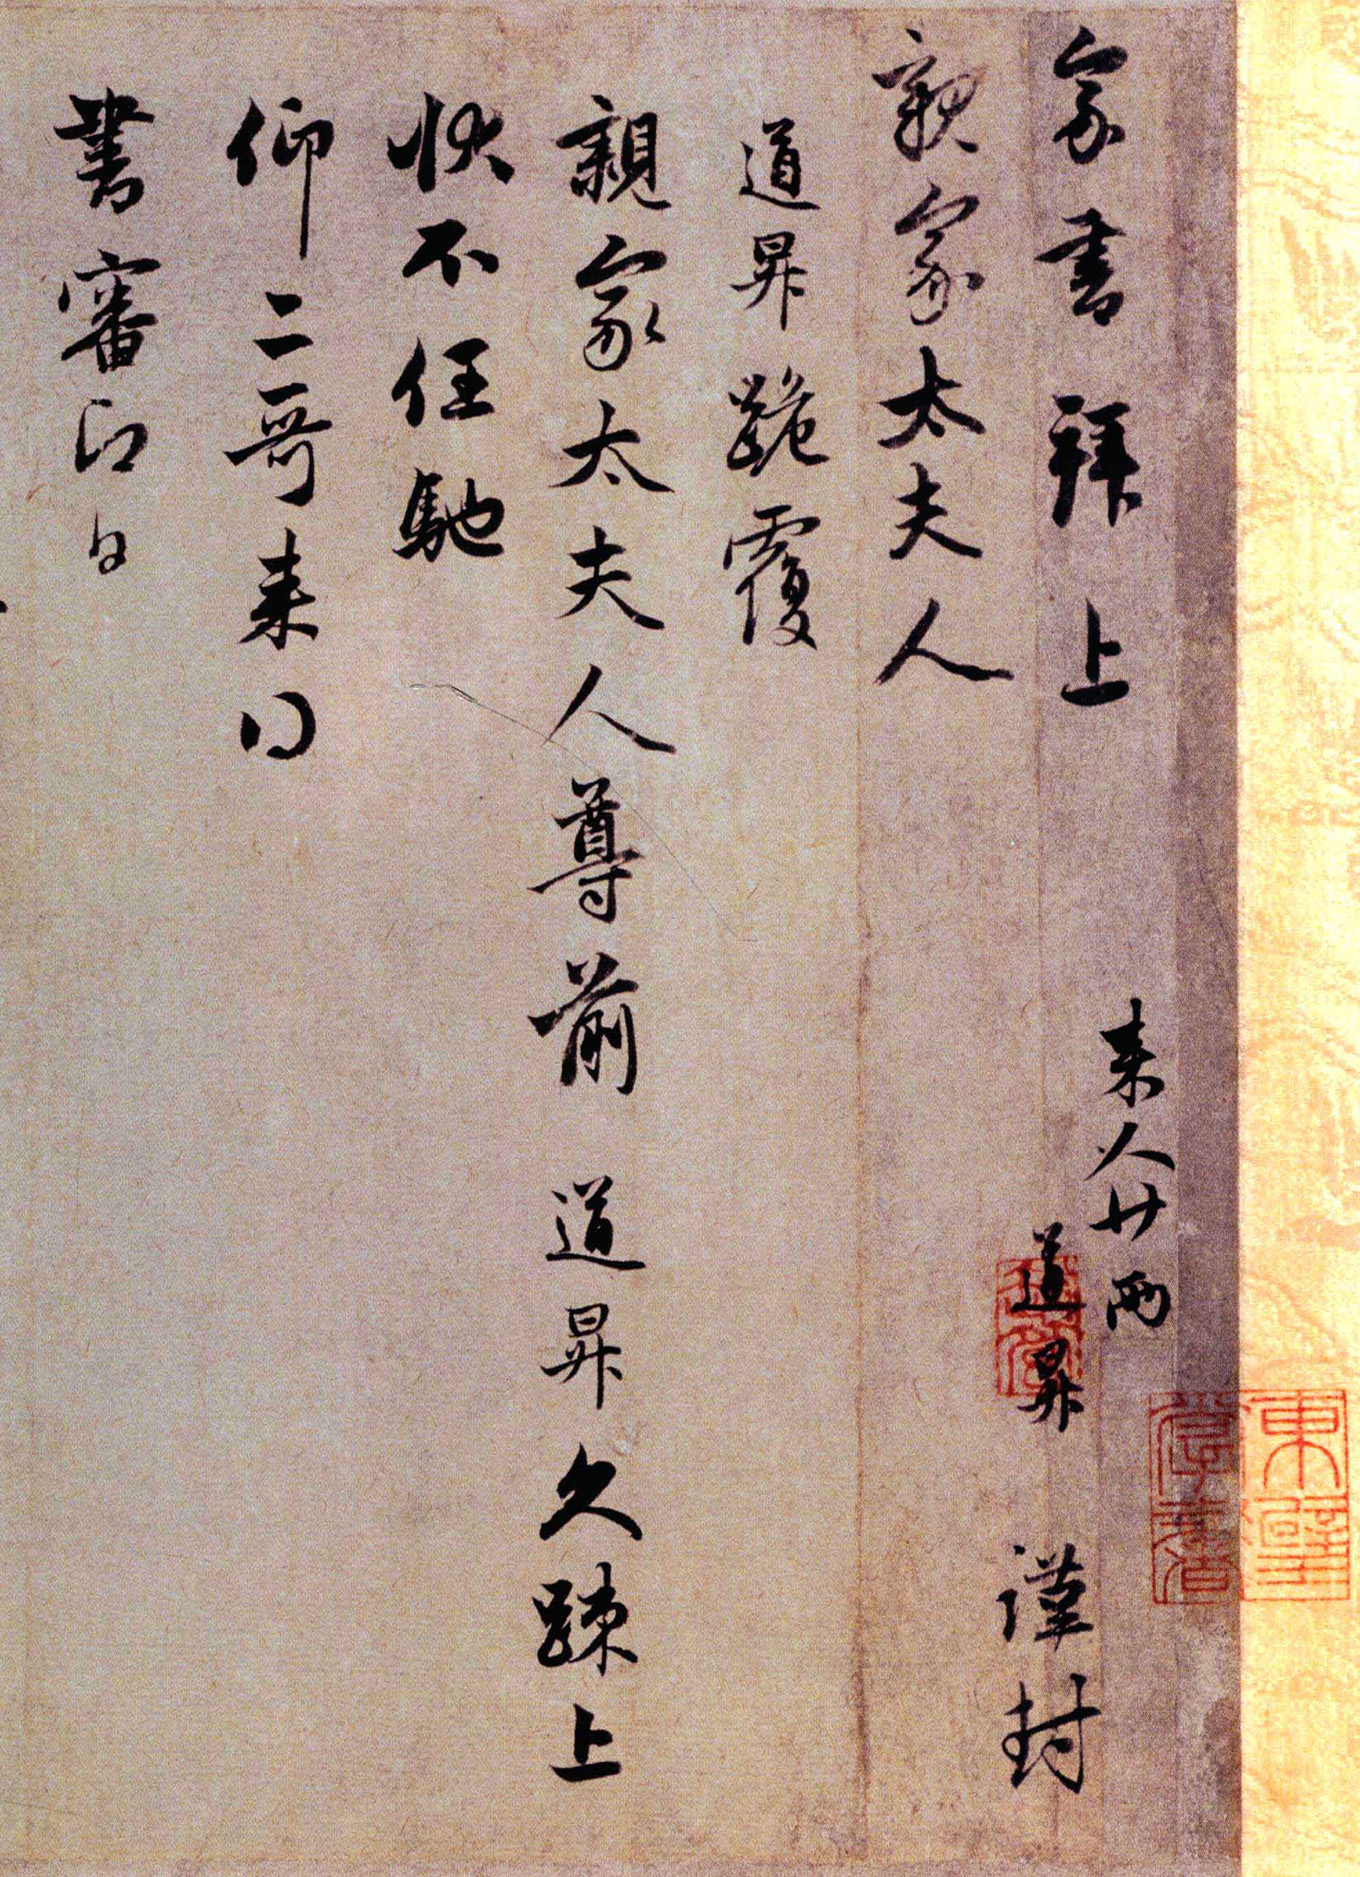 来人廿兩
家書拜上
道昇 謹封
親家太夫人
道昇跪覆
親家太夫人尊前 道昇久疎上
狀不任馳
仰二哥来得
書審即日
東壁